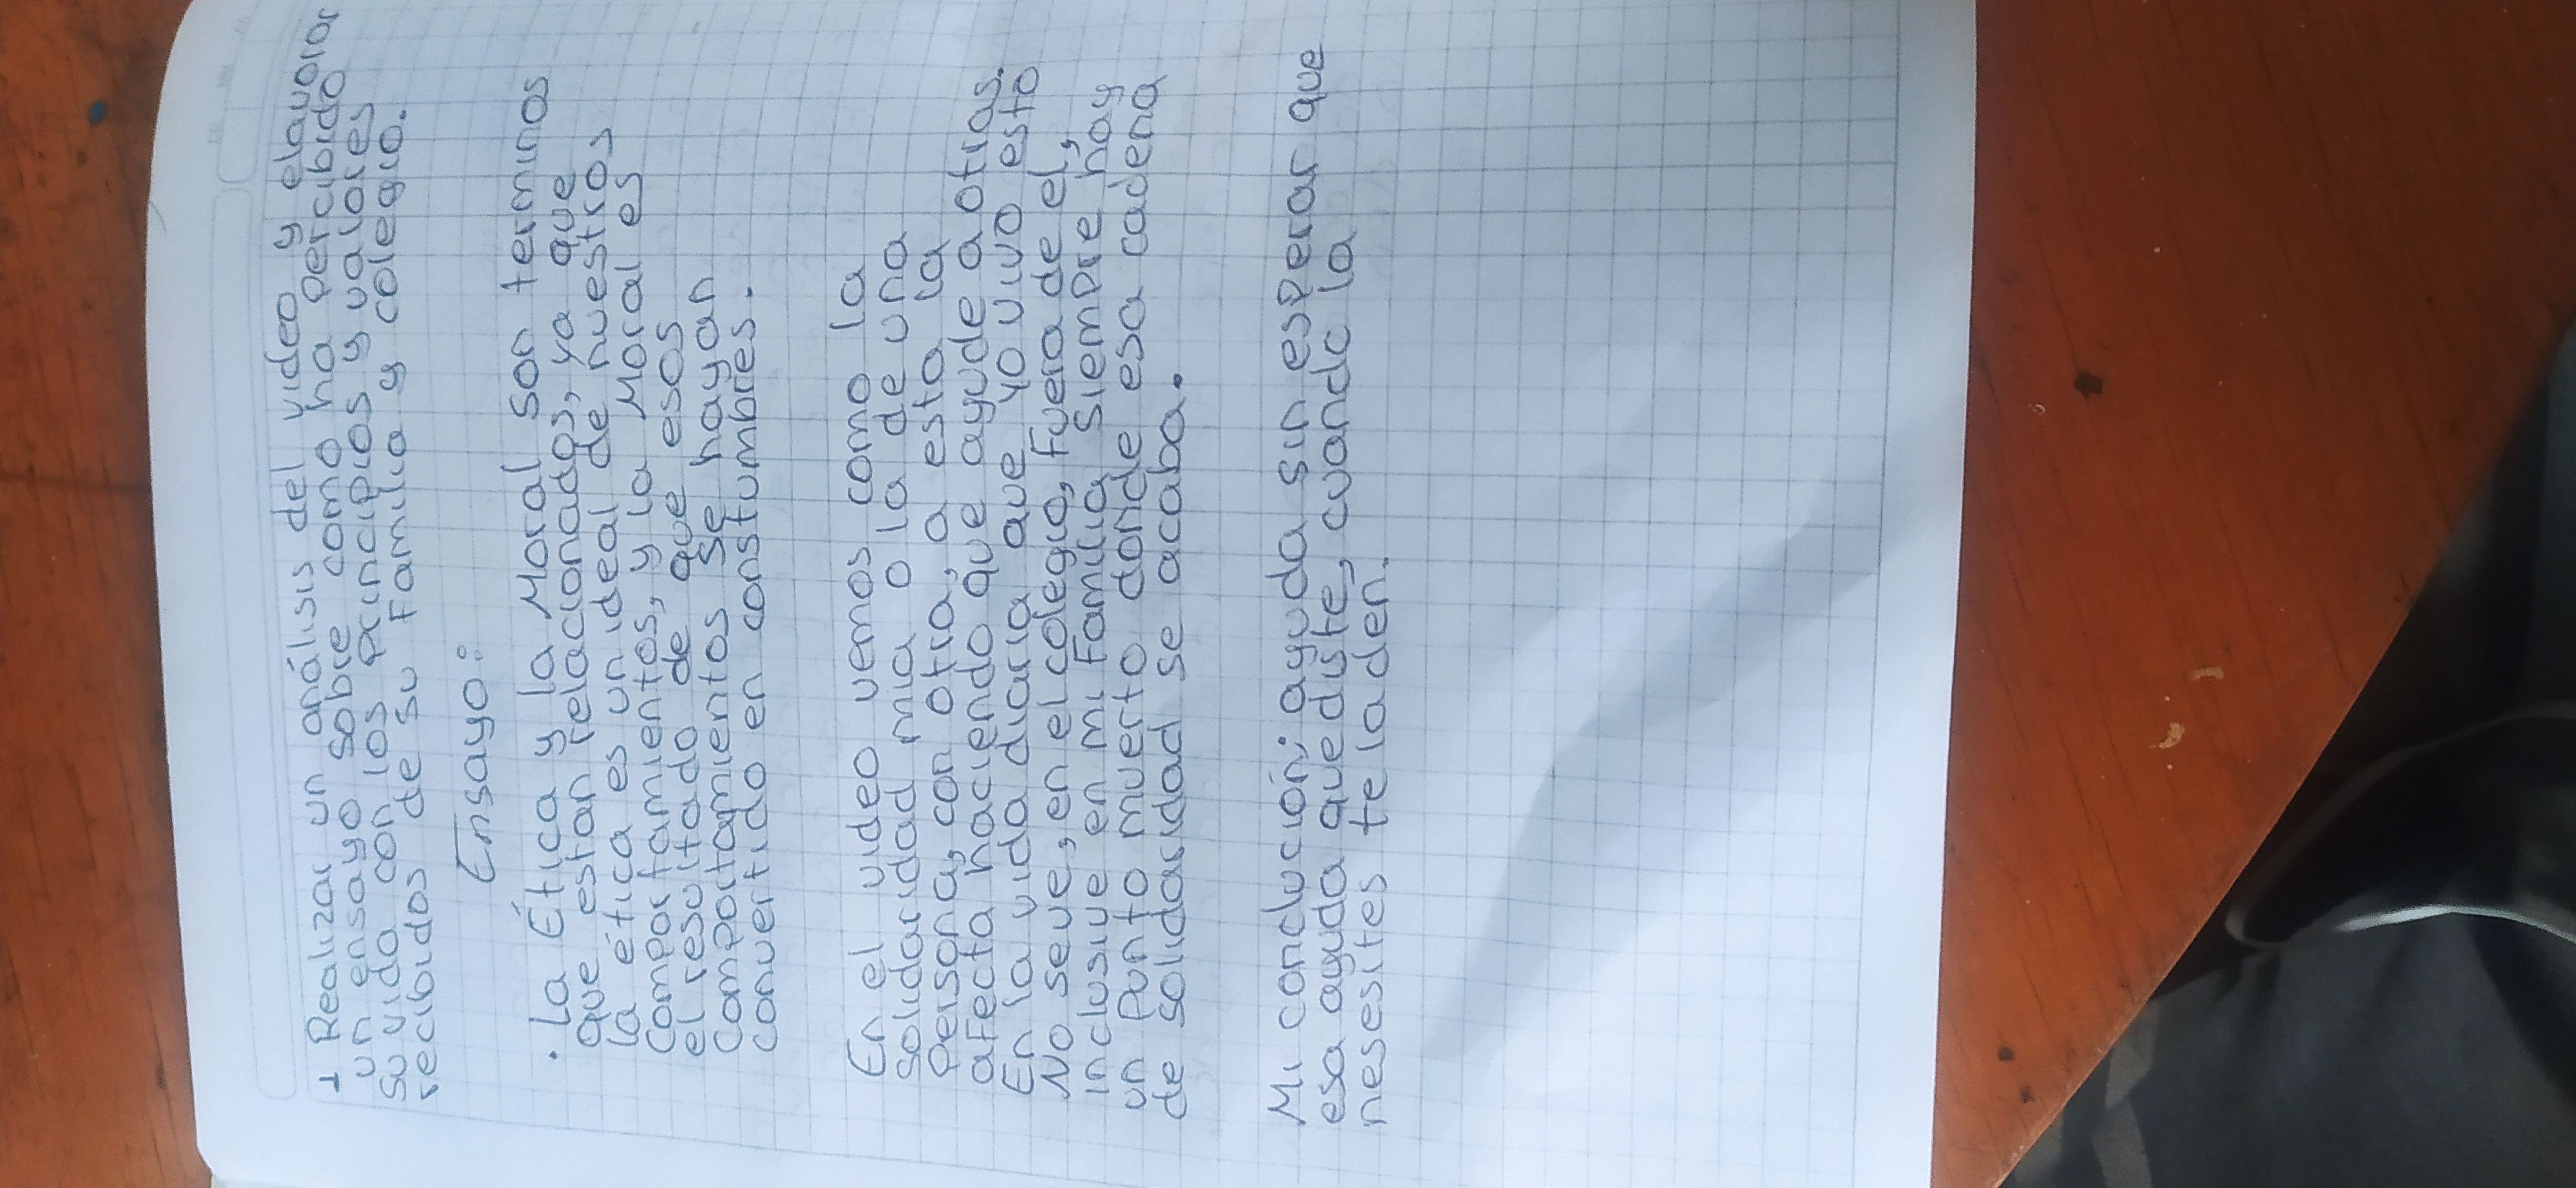 1 Realizar un análisis del video y elavorar
un ensayo sobre como ha percibido
su vida con los principios y valores
recibidos de su Familia y colegio.
Ensayo:
. La Ética y la Moral son terminos
que estan relacionados, ya que
la ética es un ideal de nuestros
comportamientos, y la Moral es
el resultado de que esos
comportamientos se hayan
convertido en constumbres.
En el video vemos como la
solidaridad mia o la de una
persona, con otra, a esta la
afecta haciendo que ayude a otras.
En la vida diaria que yo vivo esto
No seve, en el colegio, Fuera de el,
inclusive en mi Familia siempre hay
un punto muerto donde esa cadena
de solidaridad se acaba.
Mi conclución; ayuda sin esperar que
esa ayuda que diste, cuando la
nesesites te la den.